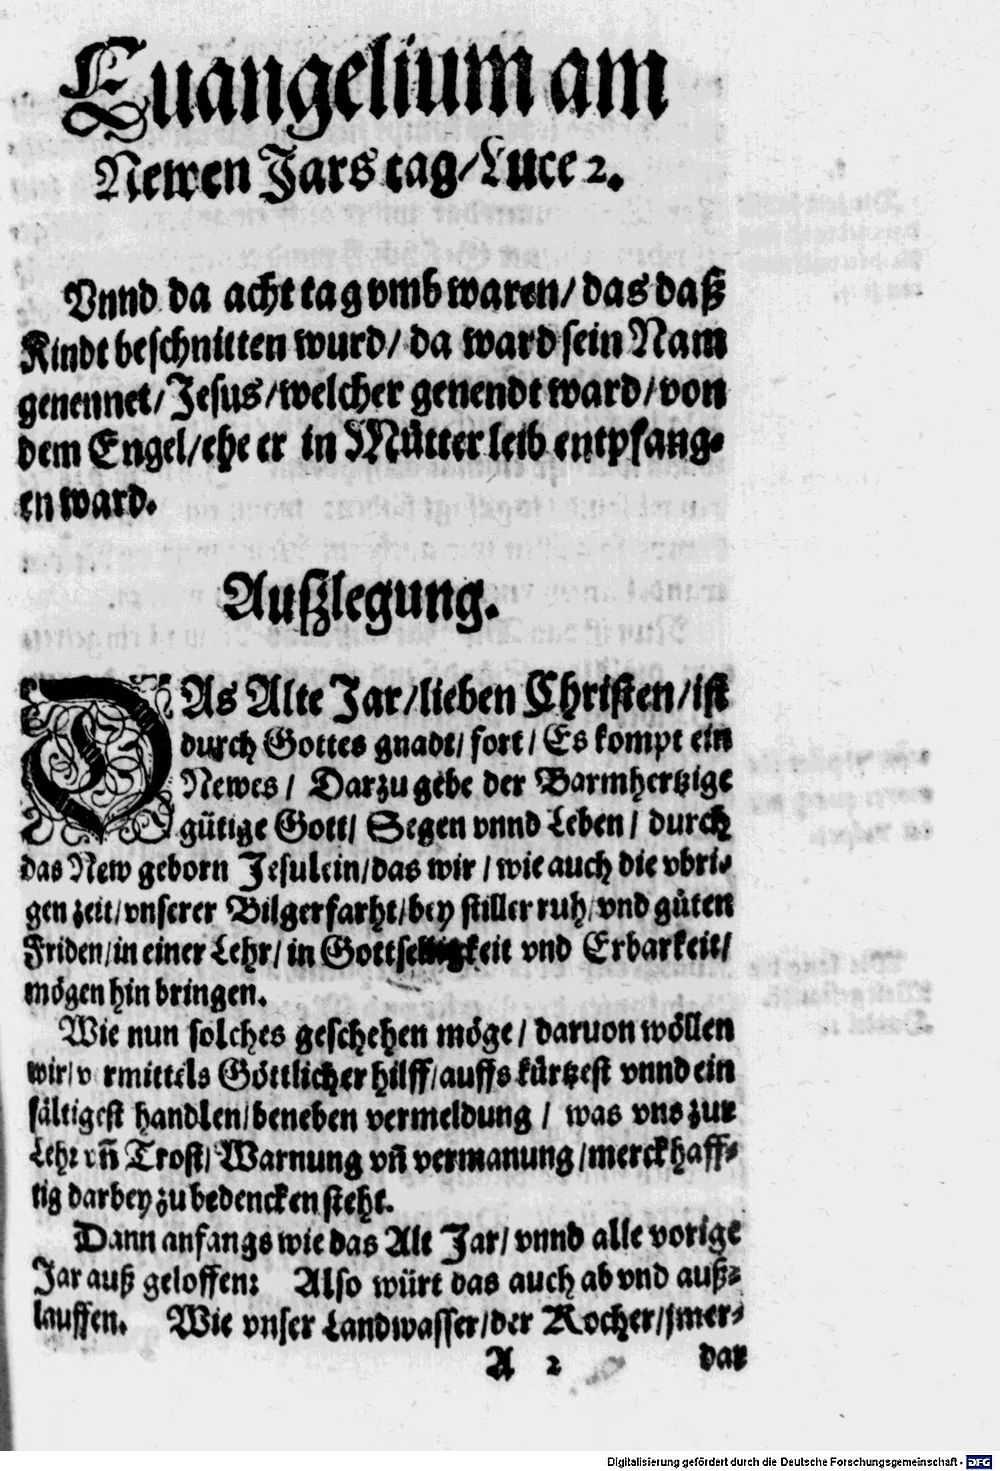 Euangelium am
Newen Jars tag/Luce 2.
Vnnd da acht tag vmb waren/das daß
Kindt beschnitten wurd/da ward sein Nam
genennet/Jesus/welcher genendt ward/von
dem Engel/ehe er in Mütter leib entpfang⸗
en ward.
Außlegung.
DAs Alte Jar/lieben Christen/ist
durch Gottes gnadt/fort/Es kompt ein
Newes/Darzu gebe der Barmhertzige
gütige Gott/Segen vnnd Leben/durch
das New geborn Jesulein/das wir/wie auch die vbri⸗
gen zeit/vnserer Bilgerfarht/bey stiller ruh/vnd güten
Friden/in einer Lehr/in Gottselligkeit vnd Erbarkeit/
mögen hin bringen.
Wie nun solches geschehen möge/daruon wöllen
wir/vermittels Göttlicher hilff/auffs kürtzest vnnd ein
fältigest handlen/beneben vermeldung/was vns zur
Lehr vñ Trost/Warnung vñ vermanung/merckhaff⸗
tig darbey zu bedencken steht.
Dann anfangs wie das Alt Jar/vnnd alle vorige
Jar auß geloffen: Also würt das auch ab vnd auß⸗
lauffen. Wie vnser Landwasser/der Kocher/jmer⸗
A 2 dar
Digitalisierung gefördert durch die Deutsche Forschungsgemeinschaft - DFG